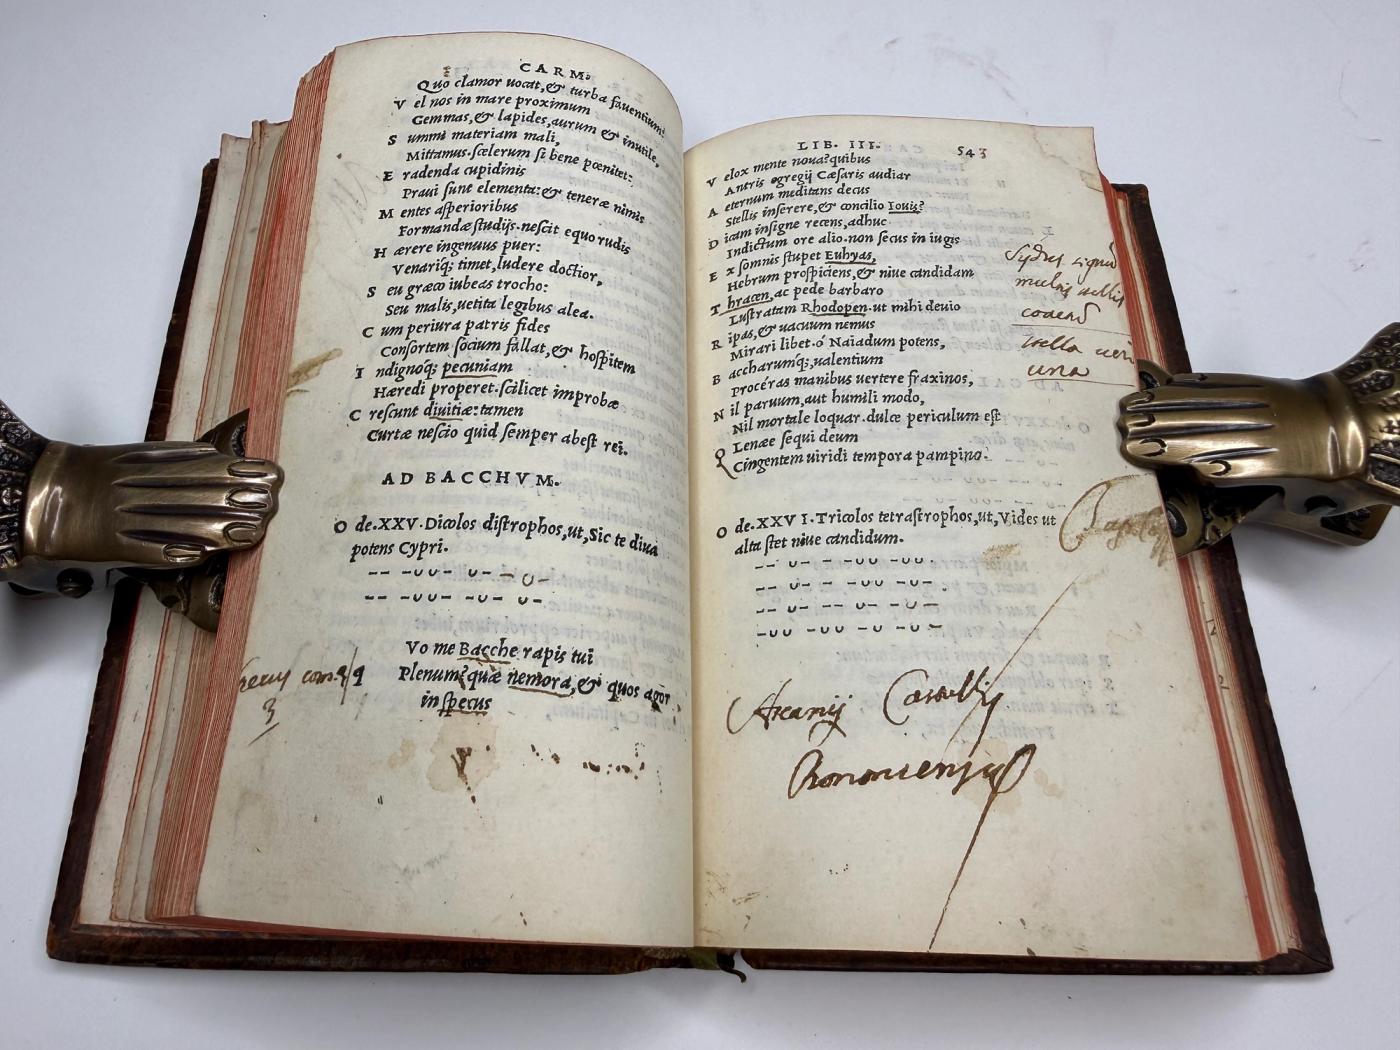 CARM.
Quo clamor uocat,& turba fauentium:
V el nos in mare proximum
Gemmas,& lapides,aurum & inutile,
S ummi materiam mali,
Mittamus.scelerum si bene pœnitet:
E radenda cupidinis
Praui sunt elementa:& teneræ nimis
M entes asperioribus
Formandæ studijs.nescit equo rudis
H ærere ingenuus puer:
Venariq; timet,ludere doctior,
S eu græco iubeas trocho:
Seu malis,uetita legibus alea.
C um periura patris fides
Consortem socium fallat,& hospitem
I ndignoq; pecuniam
Hæredi properet.scilicet improbæ
C rescunt diuitiæ:tamen
Curtæ nescio quid semper abest rei.
AD BACCHVM.
O de.XXV.Dicolos distrophos,ut,Sic te diua
potens Cypri.
Vo me Bacche rapis tui
Plenum?quæ nemora,& quos agor
in specus
3
LIB. III. 543
V elox mente noua?quibus
Antris egregij Cæsaris audiar
A eternum meditans decus
Stellis inserere,& concilio Iouis?
D icam insigne recens,adhuc
Indictum ore alio.non secus in iugis
E x somnis stupet Euhyas,
Hebrum prospiciens,& niue candidam
T hracen,ac pede barbaro
Lustratam Rhodopen.ut mihi deuio
R ipas,& uacuum nemus
Mirari libet.ó Naiadum potens,
B accharumq;,ualentium
Procéras manibus uertere fraxinos,
N il paruum,aut humili modo,
Nil mortale loquar.dulce periculum est
Q Lenæe sequi deum
Cingentem uiridi tempora pampino.
una
O de.XXVI.Tricolos tetrastrophos,ut,Vides ut
alta stet niue candidum.